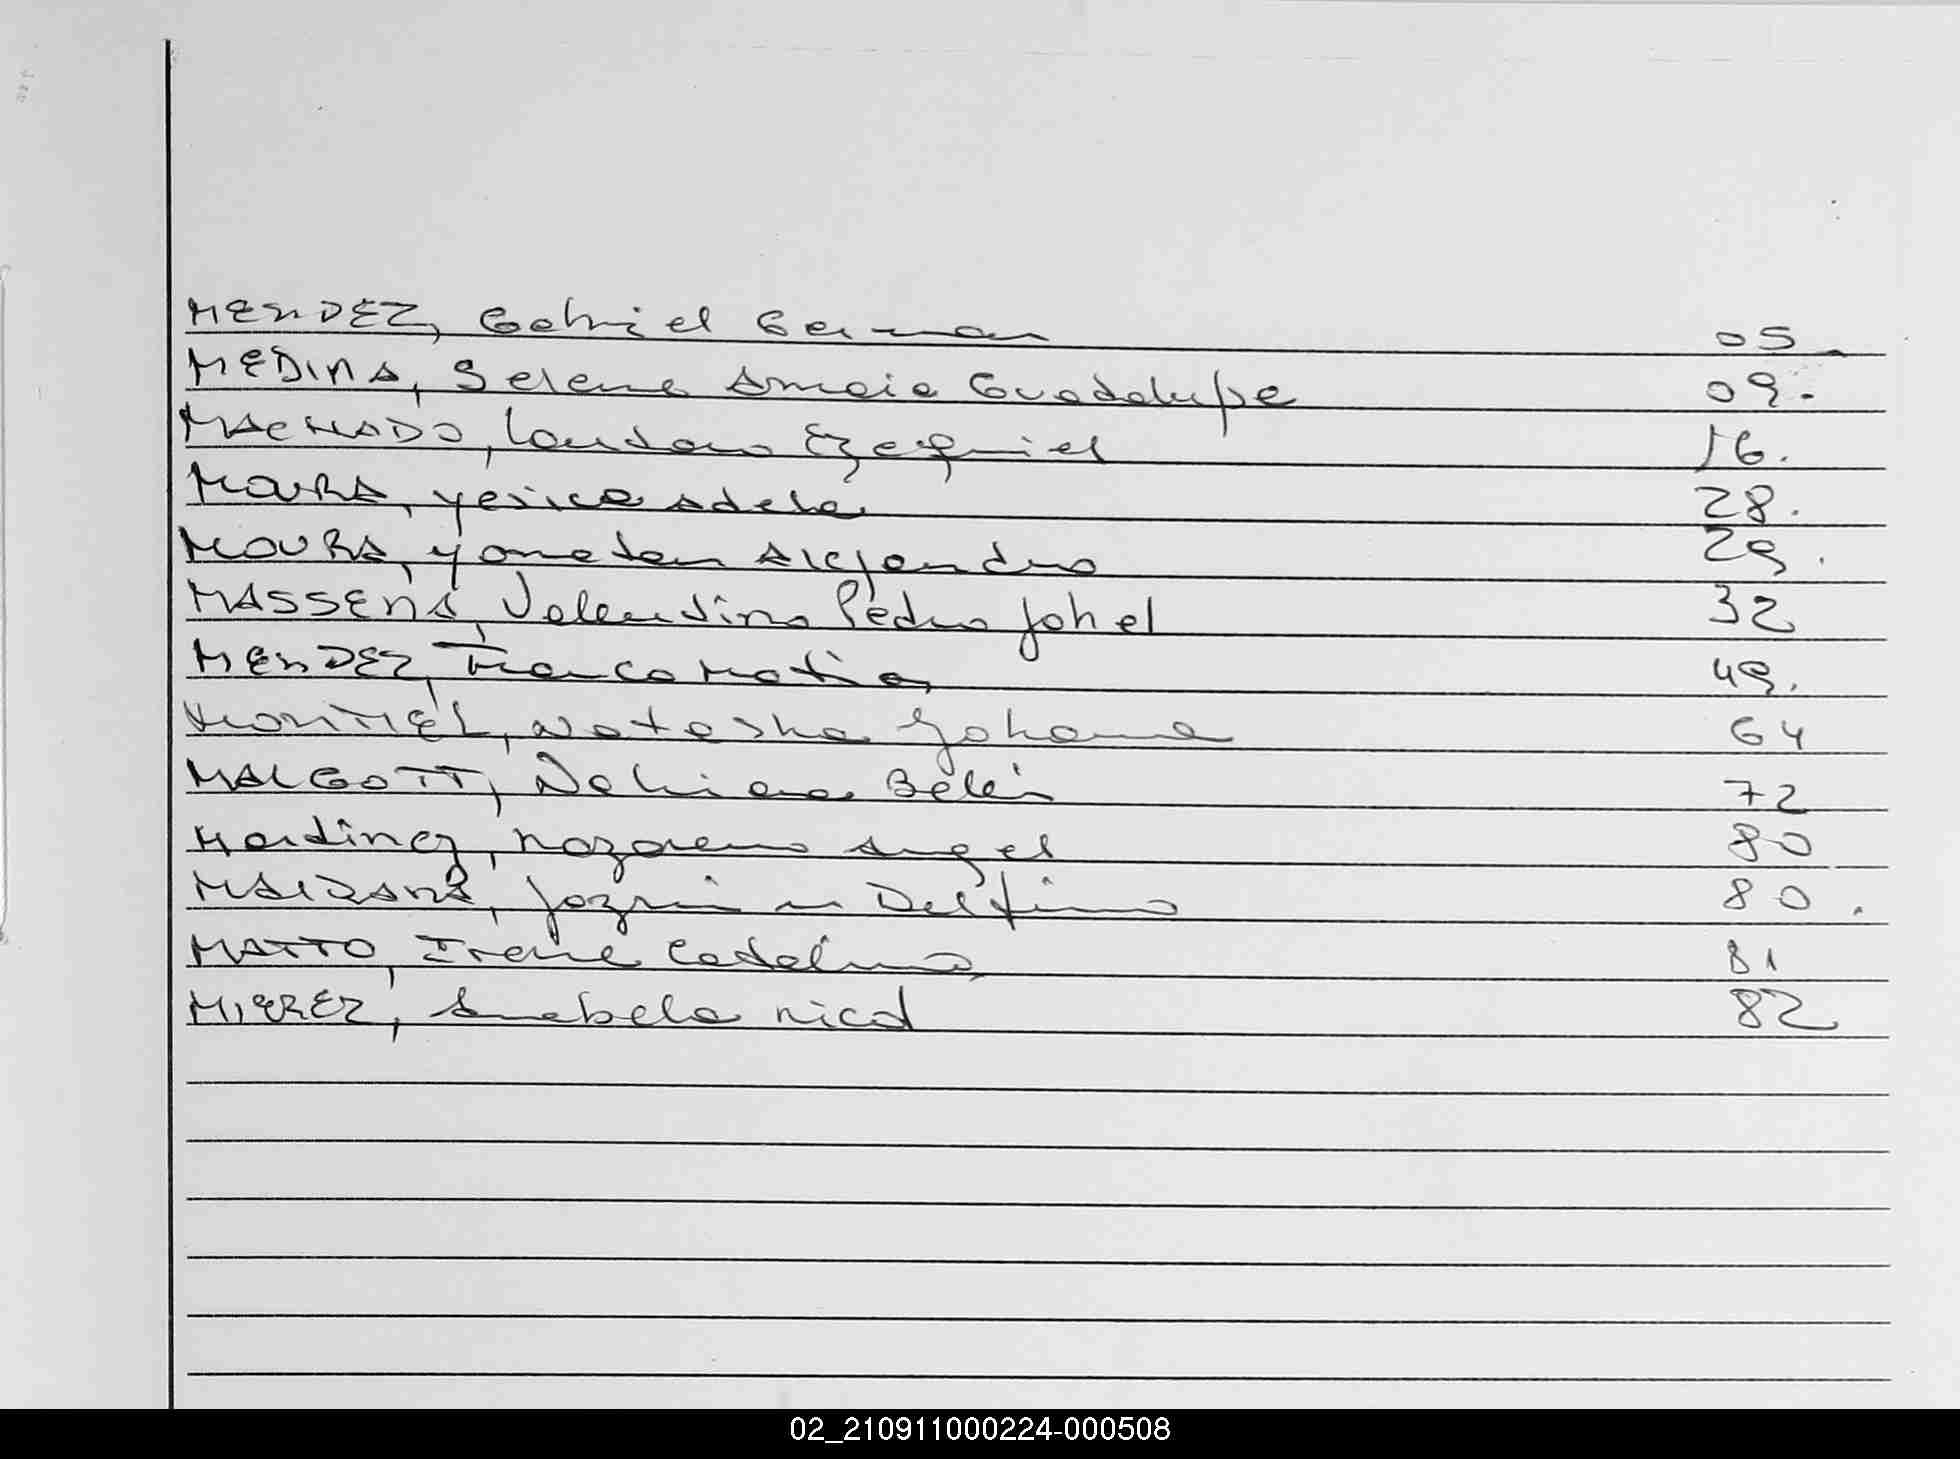 MENDEZ, Gabriel German 05
MEDINA, Selene Amaia Guadalupe 09.
MACHADO, Lautaro Ezequiel 16.
MOURA, Yesica Adela 28.
MOURA, Yonatan Alejandro 29.
MASSENA, Valentino Pedro Johel 32
MENDEZ, Franco Matias 49.
MONTIEL, Natasha Johana 64
MALGOTT, Nahiara Belén 72
Martinez, Nazareno Angel 80
MAIDANA, Delfina 80.
MATTO, Irene Catalina 81
MIEREZ, Anabela Nicol 82
02_210911000224-000508